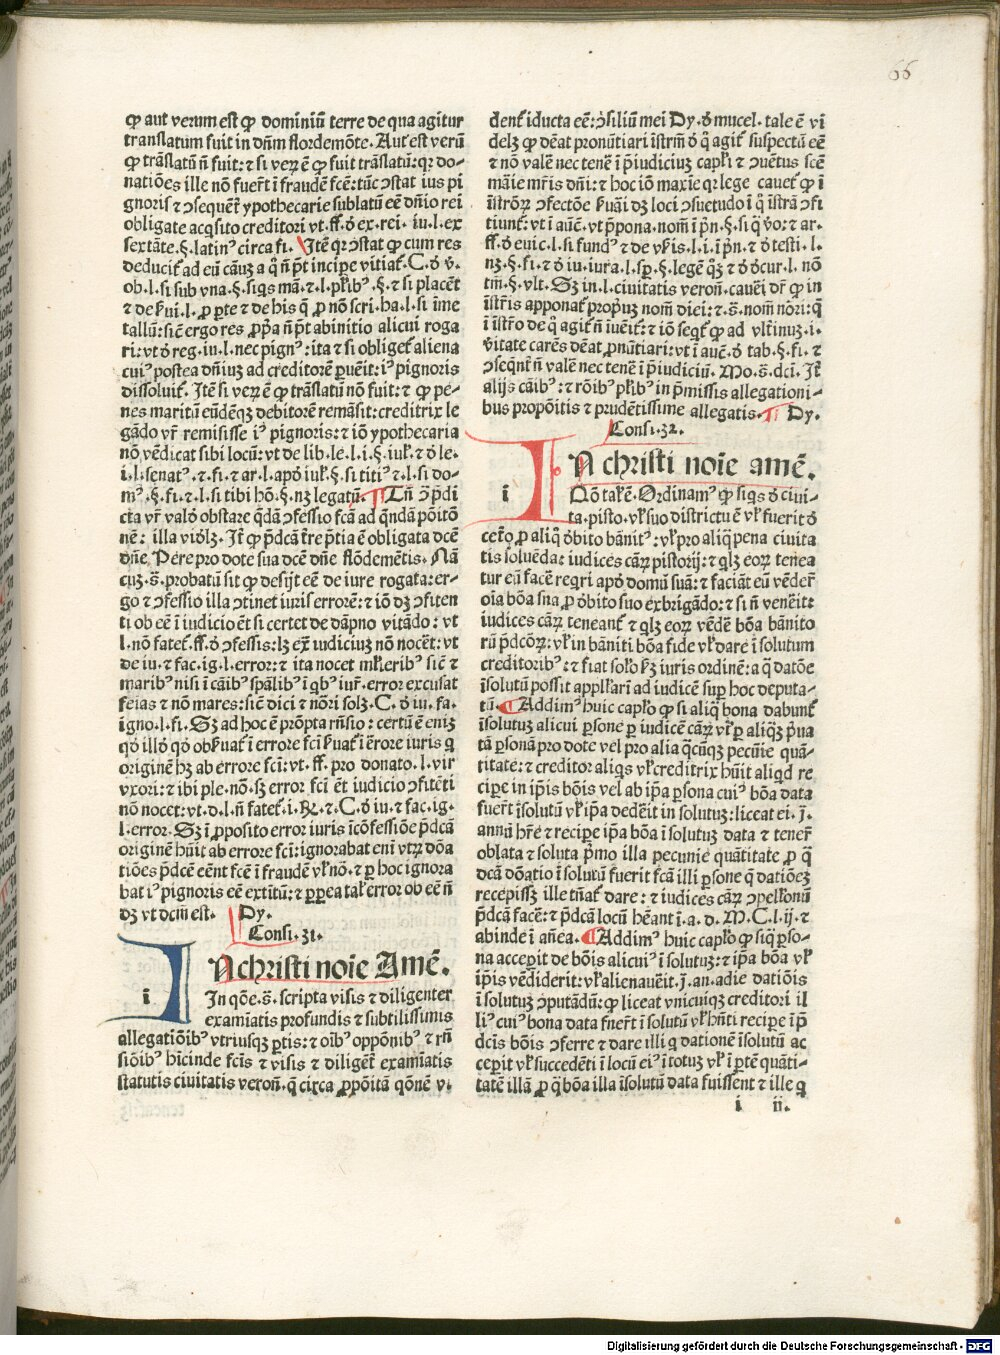 66
ꝙ aut verum est ꝙ dominiū terre de qua agitur
translatum fuit in dn̄m flordemōte. Aut est verū
ꝙ trāslatū n̄ fuit: ⁊ si veꝝ ē ꝙ fuit trāslatū: qꝛ do-
natiōes ille nō fuer̄t ī fraudē fcē: tūc ↄstat ius pi
gnoris ⁊ ↄsequēt̄ ypothecarie sublatū eē dn̄io rei
obligate acq̄sito creditori vt. ff. ỏ ex. rei. iu. l. ex
sextāte. §. latinꝰ circa fi. Itē qꝛ ↄstat ꝙ cum res
deducit̄ ad eū cāuȝ a q̄ n̄ p̄t incipe vitiat̄. C. ỏ v̄.
ob. l. si sub vna. §. siqs mā. ⁊. l. pl̄ibꝰ. §. ⁊ si placēt
tallū: sic̄ ergo res ꝓp̄a n̄ p̄t abinitio alicui roga
ri: vt ỏ reg. iu. l. nec pignꝰ: ita ⁊ si obliget̄ aliena
cuiꝰ postea dn̄iuȝ ad creditorē ꝑuēit: iꝰ pignoris
dissoluit̄. Itē si veꝝ ē ꝙ trāslatū nō fuit: ⁊ ꝙ pe-
nes maritū eūdēqȝ debitorē remāsit: creditrix le
gādo vr̄ remisisse iꝰ pignoris: ⁊ iō ypothecaria
nō vēdicat sibi locū: vt de lib. le. l. i. §. iul̄. ⁊ ỏ le.
i. l. senatꝰ. ⁊. fi. ⁊ ar. l. apỏ iul̄. §. si titiꝰ ⁊. l. si do-
mꝰ. §. fi. ⁊. l. si tibi hō. §. nȝ legatū. Tn̄ ↄ̄ p̄di
cta vr̄ valỏ obstare q̄dā ↄfessio fcā ad q̄ndā pōitō
nē: illa viỏlȝ. It̄ ꝙ p̄dcā t̄re p̄tia ē obligata dcē
dn̄e. Pere pro dote sua dcē dn̄e flōdemētis. Nā
cuȝ. s̄. probatū sit ꝙ desijt eē de iure rogata: er-
go ⁊ ↄfessio illa ↄtinet iuris errorē: ⁊ iō dȝ ↄfiten
ti ob eē ī iudicio ēt si certet de dāpno vitādo: vt
l. nō fatet̄. ff. ỏ ↄfessis: lȝ ex̄ iudiciuȝ nō nocēt: vt
de iu. ⁊ fac. ig. l. error: ⁊ ita nocet ml̄ieribꝰ sic̄ ⁊
maribꝰ nisi ī cāibꝰ sp̄alibꝰ ī qbꝰ iur̄. error excusat
feīas ⁊ nō mares: sic̄ dici ⁊ nōri solȝ. C. ỏ iu. fa.
igno. l. fi. Sȝ ad hoc ē prōpta rn̄sio: certū ē eniȝ
qỏ illỏ qỏ obs̄uat̄ ī errore fci s̄uat̄ ī ērore iuris q
originē hȝ ab errore fci: vt. ff. pro donato. l. vir
vxori: ⁊ ibi ple. nō. sȝ error fci ēt iudicio ↄfitēti
nō nocet: vt. d. l. n̄ fatet̄. i. R̄. ⁊. C. ỏ iu. ⁊ fac. ig.
l. error. Sȝ ī ꝓposito error iuris īcōfessiōe p̄dcā
originē hūit ab errore fci: ignorabat eni vtꝝ dōa
tiōes p̄dcē eēnt fcē ī fraudē vl̄ nō. ⁊ ꝑ hoc ignora
bat iꝰ pignoris eē extītū: ⁊ ꝑꝑea tal̄ error ob eē n̄
dȝ vt dcm̄ est. Dy.
Consi. 31.
IN christi noīe Amē.
i
In qōe. s̄. scripta visis ⁊ diligenter
examīatis profundis ⁊ subtilissimis
allegatiōibꝰ vtriusqȝ ꝑtis: ⁊ oībꝰ oppōnibꝰ ⁊ rn̄
siōibꝰ hīcinde fcīs ⁊ visis ⁊ diligēt̄ examīatis
statutis ciuitatis veroñ. q̄ circa ꝓpōitā qōnē vi
dent̄ iducta eē: ↄ̓siliū mei Dy. ỏ mucel. tale ē vi
delȝ ꝙ dēat pronūtiari īstrm̄ ỏ q̄ agit̄ suspectū eē
⁊ nō valē nec tenē ī p̄iudiciuȝ capl̄i ⁊ ↄuētus scē
māie mr̄is dn̄i: ⁊ hoc iō maxie qꝛ lege cauet̄ ꝙ ī
īstrōꝝ ↄfectōe s̄uāi dȝ loci ↄsuetudo ī q̄ īstrā ↄfi
tiunt̄: vt ī auē. vt p̄pona. nom̄ ī p̄n. §. si q̄ v̓o: ⁊ ar.
ff. ỏ euic. l. si fundꝰ ⁊ de vl̄is. l. i. īp̄n. ⁊ ỏ testi. l.
nȝ. §. fi. ⁊ ỏ iu. iura. l. sp̄. §. legē q̄ȝ ⁊ ỏ ỏcur. l. nō
tm̄. §. vlt. Sȝ in. l. ciuitatis veroñ. cauei dr̄ ꝙ in
īstr̄is apponat̄ prop̓uȝ nom̄ diei: ⁊. s̄. nom̄ nōri: q̄
ī īstr̄o de q̄ agit̄ n̄ iuēit̄: ⁊ iō seqt̄ ꝙ ad vlt̄inuȝ. i.
v̓itate carēs dēat ꝓnūtiari: vt ī auē. ỏ tab. §. fi. ⁊
ↄseqn̄t̄ n̄ valē nec tenē ī p̄iudiciū. Mo. s̄. dci. It̄
alijs cāibꝰ: ⁊ rōibꝰ pl̄ibꝰ in p̄missis allegationi-
bus propōitis ⁊ prudētissime allegatis. Dy.
Consi. 32.
IN christi noīe amē.
i
Qō talē. Ordinamꝰ ꝙ siqs ỏ ciui-
ta. pisto. vl̄ suo districtu ē vl̄ fuerit ỏ
cet̄o ꝓ aliq̄ ỏbito bānitꝰ: vl̄ pro aliq̄ pena ciuita
tis soluēda: iudices cāꝝ pistorij: ⁊ qlȝ eoꝝ tenea
tur eū facē reqri apỏ domū suā: ⁊ faciāt eū vēder̄
oīa bōa sua ꝓ ỏbito suo exbrigādo: ⁊ si n̄ venēit⁊
iudices cāꝝ teneant̄ ⁊ qlȝ eoꝝ vēdē bōa bānito
rū p̄dcōꝝ: vl̄ in bāniti bōa fide vl̄ dare ī solutum
creditoribꝰ: ⁊ fiat solo s̄ȝ iuris ordinē: a q̄ datōe
īsolutū possit appl̄lari ad iudicē suꝑ hoc deputa-
tū. Addimꝰ huic caplo ꝙ si aliq̄ bona dabunt̄
īsolutuȝ alicui ꝑsone ꝑ iudicē cāꝝ vl̄ ꝑ aliq̄ȝ p̄ua
tā ꝑsonā pro dote vel pro alia q̄cūqȝ pecūie quā-
titate: ⁊ creditor aliqs vl̄ creditrix hūit aliqd re
cipe in ip̄is bōis vel ab ip̄a ꝑsona cuiꝰ bōa data
fuer̄t īsolutū vl̄ ip̄a dedēit in solutuȝ: liceat ei. j̄.
annū hr̄e ⁊ recipe ip̄a bōa īsolutuȝ data ⁊ tener̄
oblata ⁊ soluta p̄mo illa pecunie quātitate ꝓ q̄
dcā dōatio īsolutū fuerit fcā illi ꝑsone q̄ datiōeȝ
recepissȝ ille tn̄at̄ dare: ⁊ iudices cāꝝ ↄpellonū
p̄dcā facē: ⁊ p̄dcā locū hēant ī. a. d. M. C. l. ij. ⁊
abinde ī añea. Addimꝰ huic caplo ꝙ siq̄ ꝑso-
na accepit de bōis alicuiꝰ īsolutuȝ: ⁊ ip̄a bōa vl̄
ip̄is vēdiderit: vl̄ alienauēit. j̄. an. adie datiōis
īsolutū ↄputādū: ꝙ liceat vnicuiqȝ creditori il
liꝰ cuiꝰ bona data fuer̄t īsolutū vl̄ hn̄ti recipe īp̄
dcīs bōis ↄferre ⁊ dare illi q dationē īsolutū ac
cepit vl̄ succedēti ī locū eiꝰ ī totuȝ vl̄ ī ꝑtē quāti-
tatē illā ꝓ q̄ bōa illa īsolutū data fuissent ⁊ ille q
i ii.
Digitalisierung gefördert durch die Deutsche Forschungsgemeinschaft - DFG